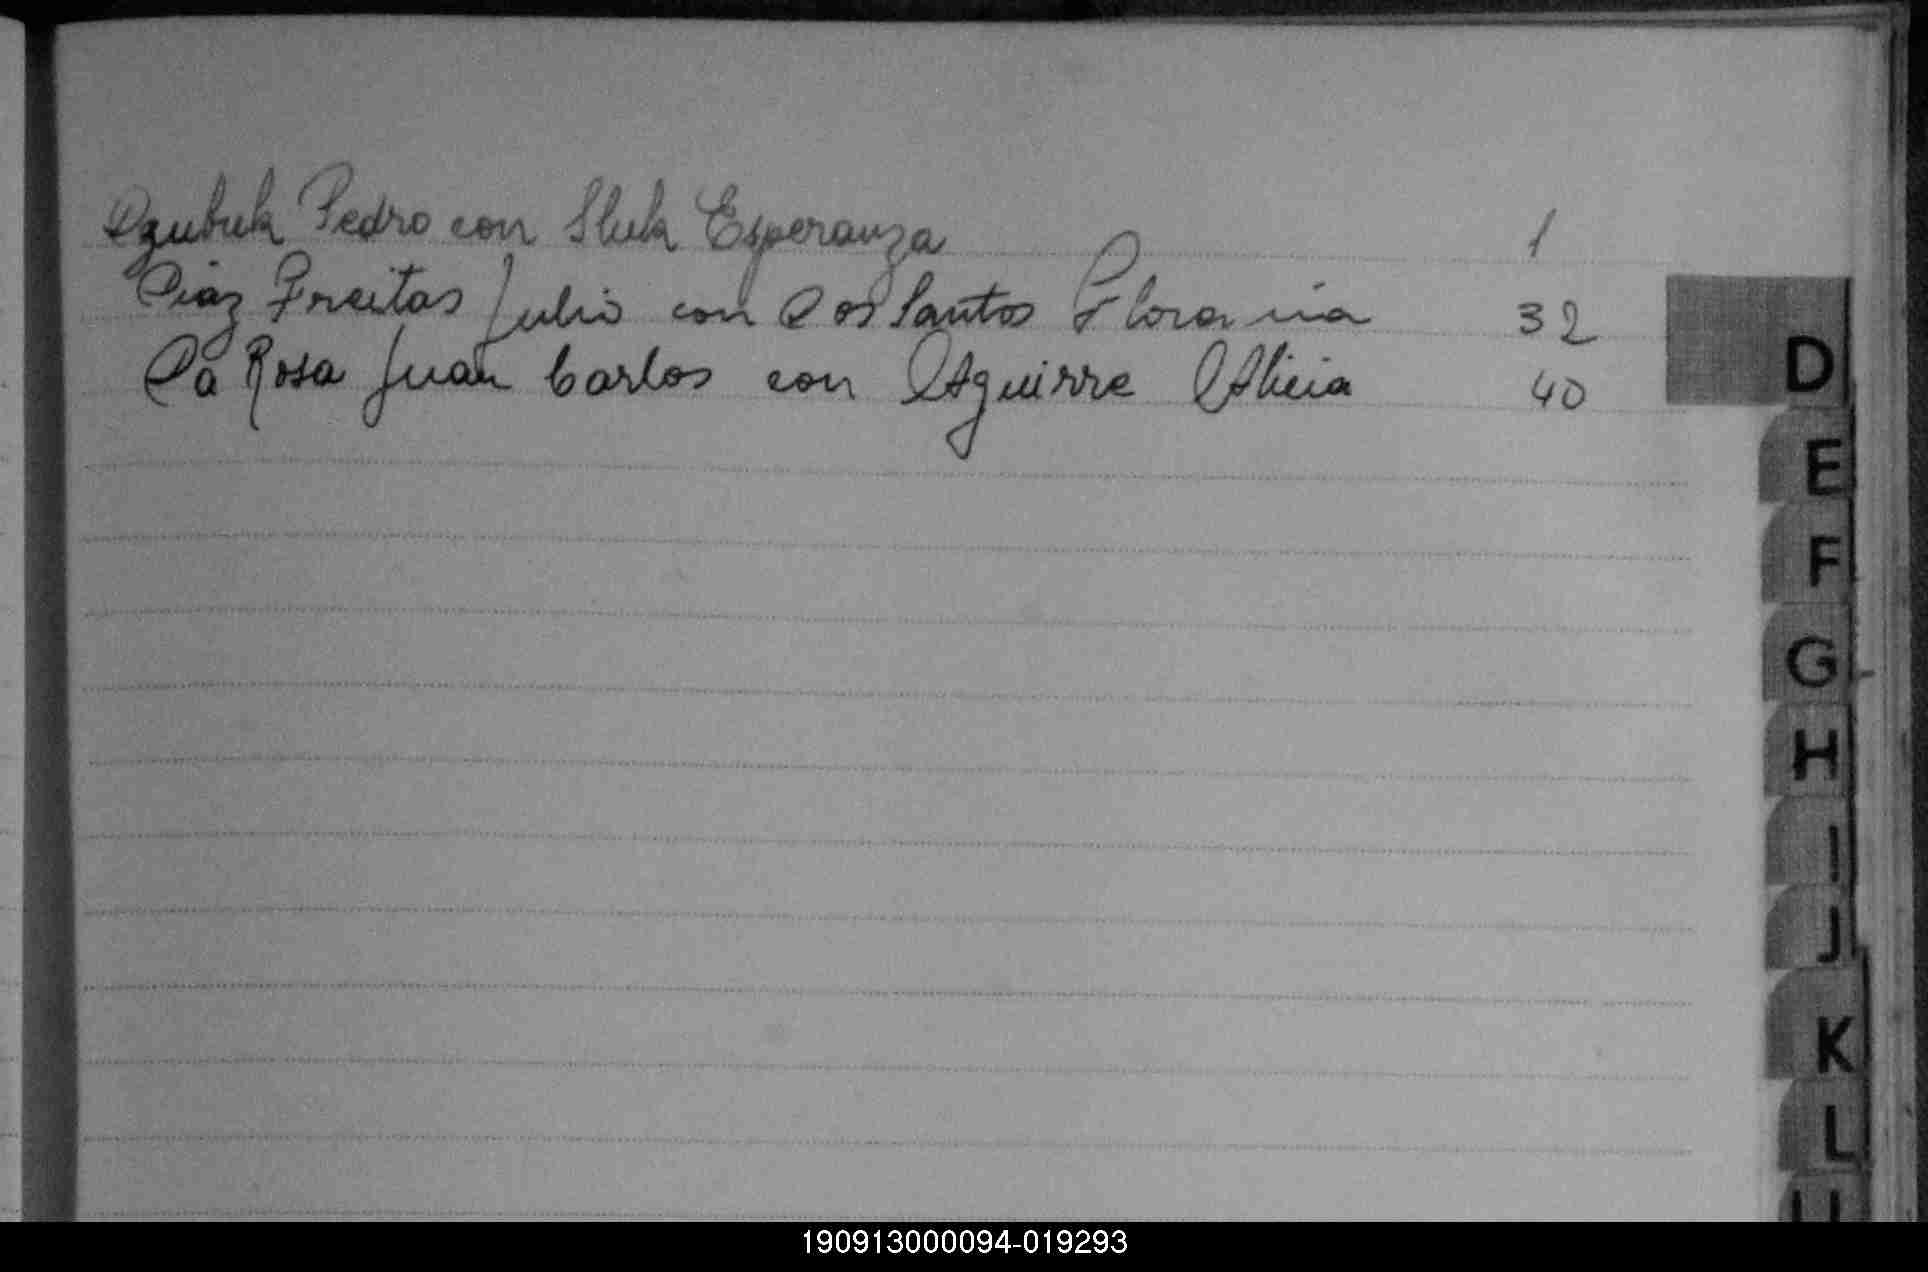 Dzubuk Pedro con Sluk Esperanza 1
Diaz Freitas Julio con Dos Santos 32
Da Rosa Juan Carlos con Aguirre Alicia 40
D
E
F
G
H
I
J
K
L
190913000094-019293